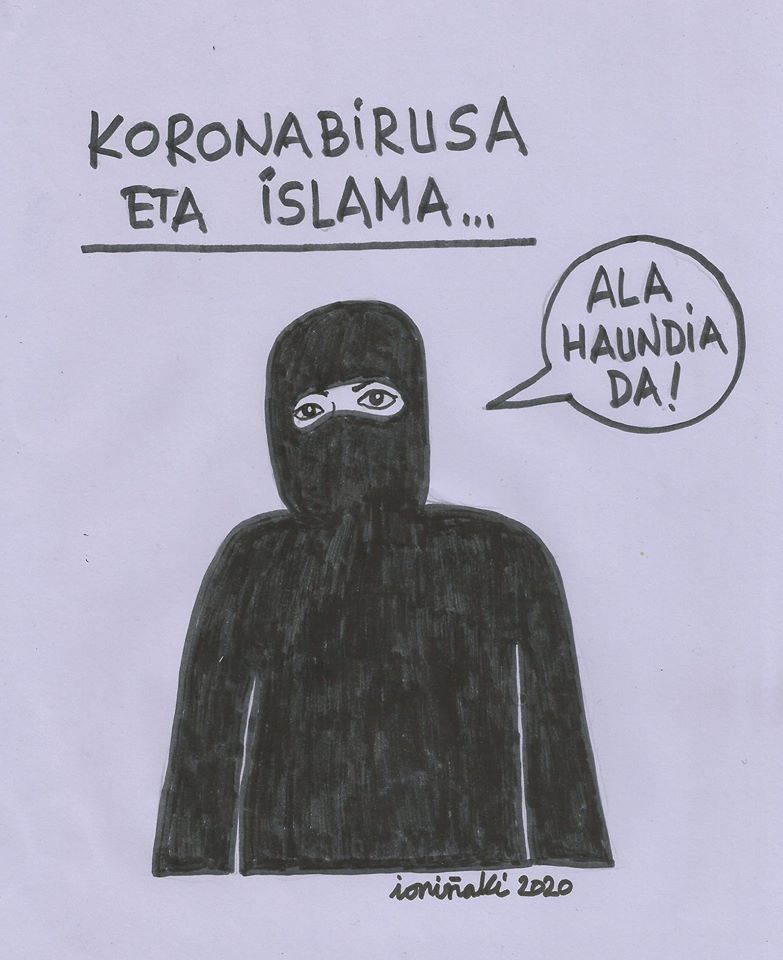 KORONABIRUSA
ETA ISLAMA...
ALA
HAUNDIA
DA!
ioniñaki 2020